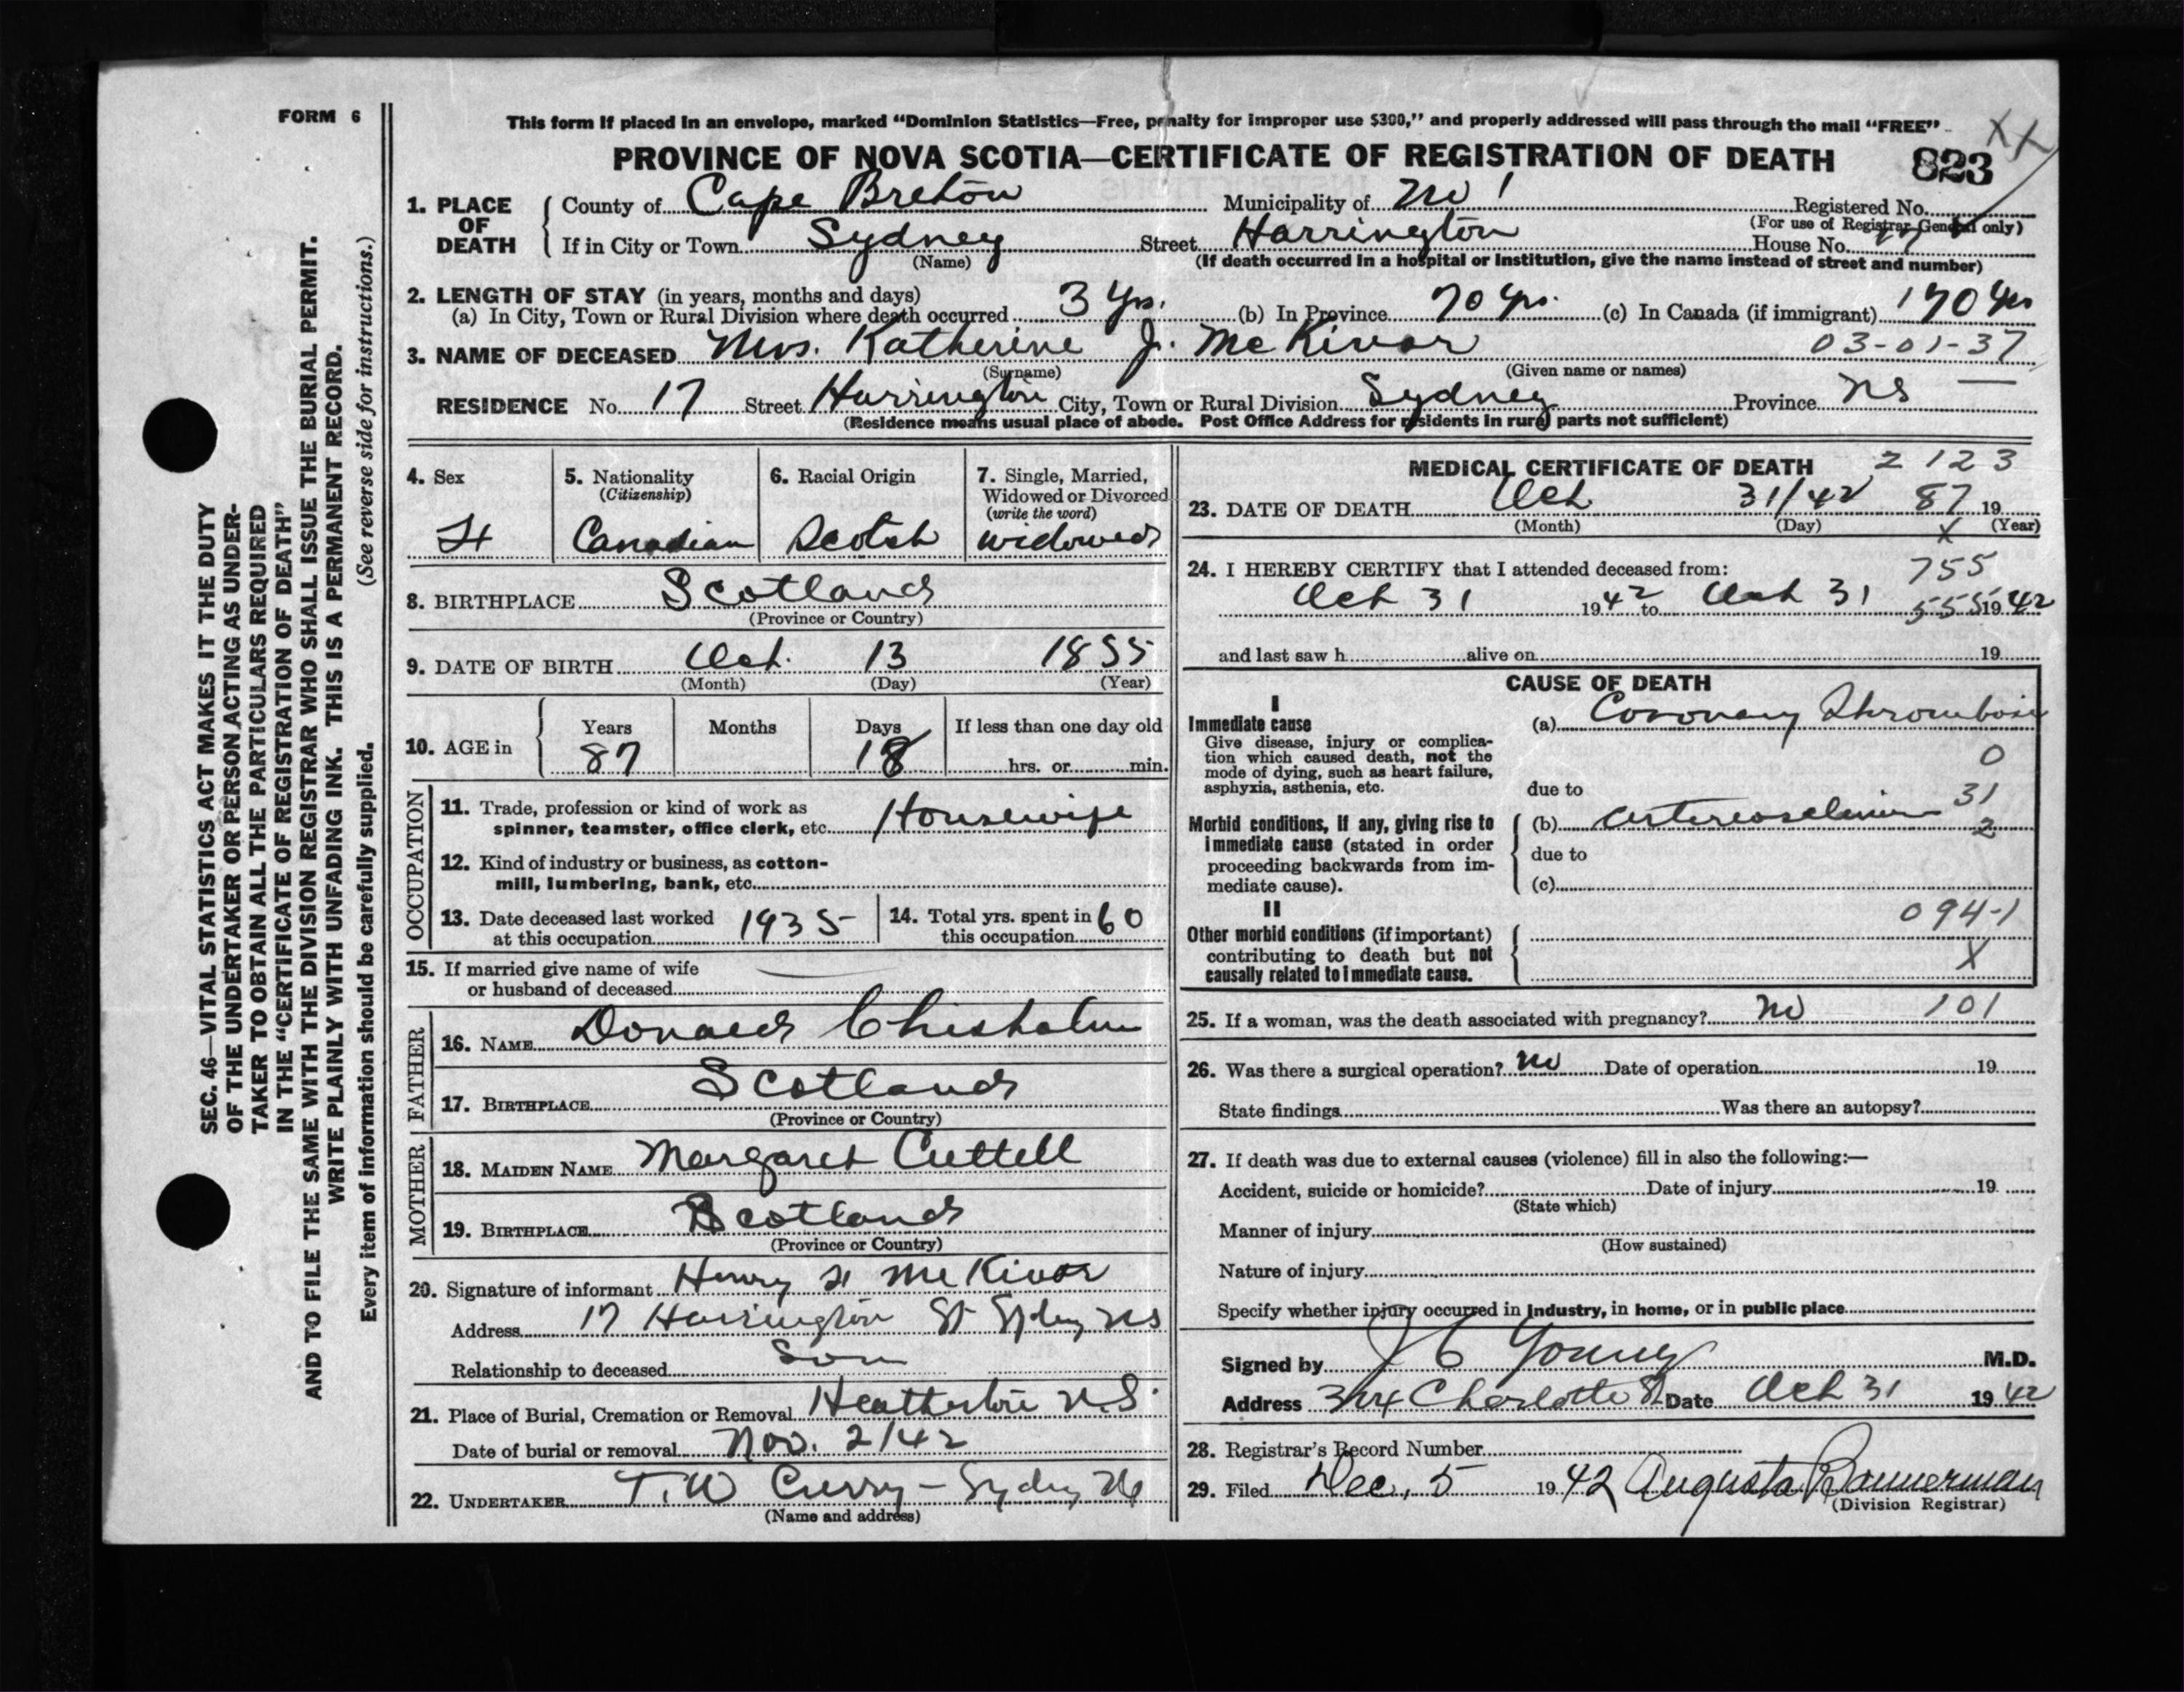 FORM 6
This form if placed in an envelope, marked “Dominion Statistics—Free, penalty for improper use $300,” and properly addressed will pass through the mail “FREE”
XX
PROVINCE OF NOVA SCOTIA—CERTIFICATE OF REGISTRATION OF DEATH 823
1. PLACE OF DEATH
County of Cape Breton Municipality of No 1 Registered No.
(For use of Registrar General only)
If in City or Town Sydney Street Harrington House No. 17
(Name) (If death occurred in a hospital or institution, give the name instead of street and number)
2. LENGTH OF STAY (in years, months and days)
(a) In City, Town or Rural Division where death occurred 3 yrs. (b) In Province 70 yrs. (c) In Canada (if immigrant) 70 yrs
3. NAME OF DECEASED Mrs. Katherine J. McKivor 03-01-37
(Surname) (Given name or names)
RESIDENCE No. 17 Street Harrington City, Town or Rural Division Sydney Province NS —
(Residence means usual place of abode. Post Office Address for residents in rural parts not sufficient)
4. Sex
5. Nationality
(Citizenship)
6. Racial Origin
7. Single, Married,
Widowed or Divorced
(write the word)
Canadian Scotch widowed
8. BIRTHPLACE Scotland
(Province or Country)
9. DATE OF BIRTH Oct. 13 1855
(Month) (Day) (Year)
10. AGE in
Years Months Days If less than one day old
87 18 hrs. or min.
OCCUPATION
11. Trade, profession or kind of work as
spinner, teamster, office clerk, etc. Housewife
12. Kind of industry or business, as cotton-
mill, lumbering, bank, etc.
13. Date deceased last worked
at this occupation 1935
14. Total yrs. spent in
this occupation 60
15. If married give name of wife
or husband of deceased —
FATHER
16. NAME Donald Chisholm
17. BIRTHPLACE Scotland
(Province or Country)
MOTHER
18. MAIDEN NAME Margaret Cuttell
19. BIRTHPLACE Scotland
(Province or Country)
20. Signature of informant Henry McKivor
Address 17 Harrington St Sydney NS
Relationship to deceased Son
21. Place of Burial, Cremation or Removal Heatherton N.S.
Date of burial or removal Nov. 2/42
22. UNDERTAKER T. W Curry – Sydney NS
(Name and address)
MEDICAL CERTIFICATE OF DEATH 2123
23. DATE OF DEATH Oct 31/42 87 19
(Month) (Day) X (Year)
24. I HEREBY CERTIFY that I attended deceased from: 755
Oct 31 1942 to Oct 31 555 1942
and last saw h alive on 19
CAUSE OF DEATH
I
Immediate cause (a) Coronary Thrombosis
Give disease, injury or complica-
tion which caused death, not the
mode of dying, such as heart failure,
asphyxia, asthenia, etc.
0
due to
31
Morbid conditions, if any, giving rise to (b) arteriosclerosis 2
immediate cause (stated in order
proceeding backwards from im-
mediate cause).
due to
(c)
II
094-1
Other morbid conditions (if important)
contributing to death but not
causally related to immediate cause.
X
25. If a woman, was the death associated with pregnancy? no 101
26. Was there a surgical operation? no Date of operation 19
State findings Was there an autopsy?
27. If death was due to external causes (violence) fill in also the following:—
Accident, suicide or homicide? Date of injury 19
(State which)
Manner of injury
(How sustained)
Nature of injury
Specify whether injury occurred in industry, in home, or in public place
Signed by J C Young M.D.
Address 344 Charlotte St Date Oct 31 1942
28. Registrar's Record Number
29. Filed Dec. 5 1942 Augusta Bannerman
(Division Registrar)
SEC. 46—VITAL STATISTICS ACT MAKES IT THE DUTY
OF THE UNDERTAKER OR PERSON ACTING AS UNDER-
TAKER TO OBTAIN ALL THE PARTICULARS REQUIRED
IN THE “CERTIFICATE OF REGISTRATION OF DEATH”
AND TO FILE THE SAME WITH THE DIVISION REGISTRAR WHO SHALL ISSUE THE BURIAL PERMIT.
WRITE PLAINLY WITH UNFADING INK. THIS IS A PERMANENT RECORD.
Every item of information should be carefully supplied. (See reverse side for instructions.)